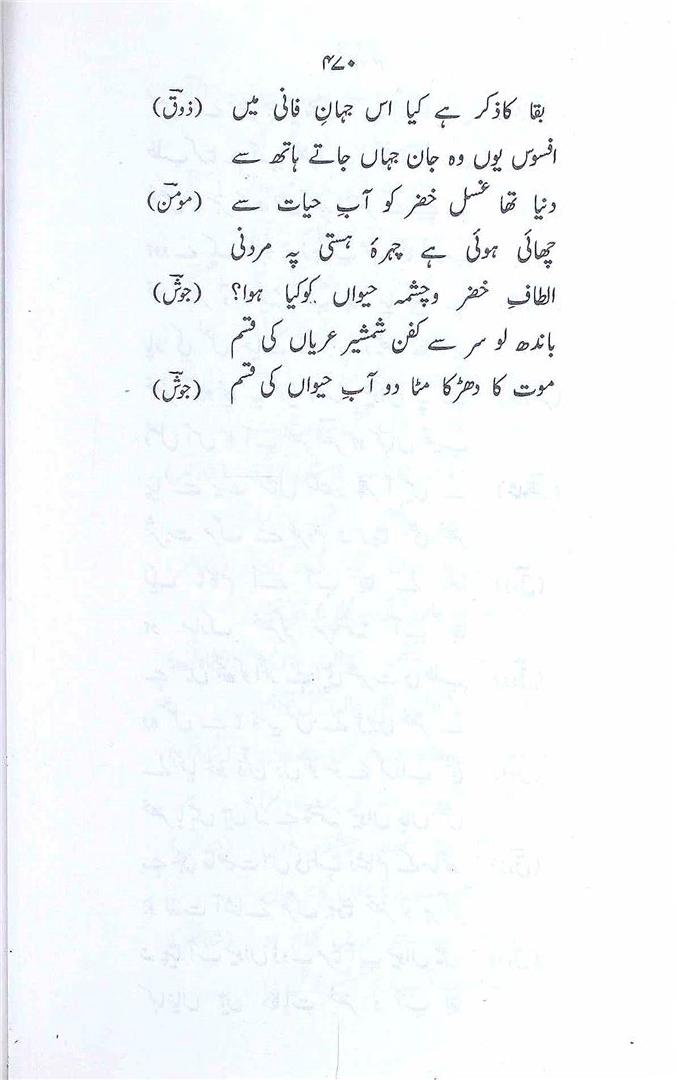 ۴۷۰
بقا کاذکر ہے کیا اس جہانِ فانی میں (ذوق)
افسوس یوں وہ جان جہاں جاتے ہاتھ سے
دنیا تھا غسل خضر کو آبِ حیات سے (مومن)
چھائی ہوئی ہے چہرۂ ہستی پہ مردنی
الطافِ خضر وچشمہ حیواں کوکیا ہوا؟ (جوش)
باندھ لو سر سے کفن شمشیر عریاں کی قسم
موت کا دھڑکا مٹا دو آبِ حیواں کی قسم (جوش)